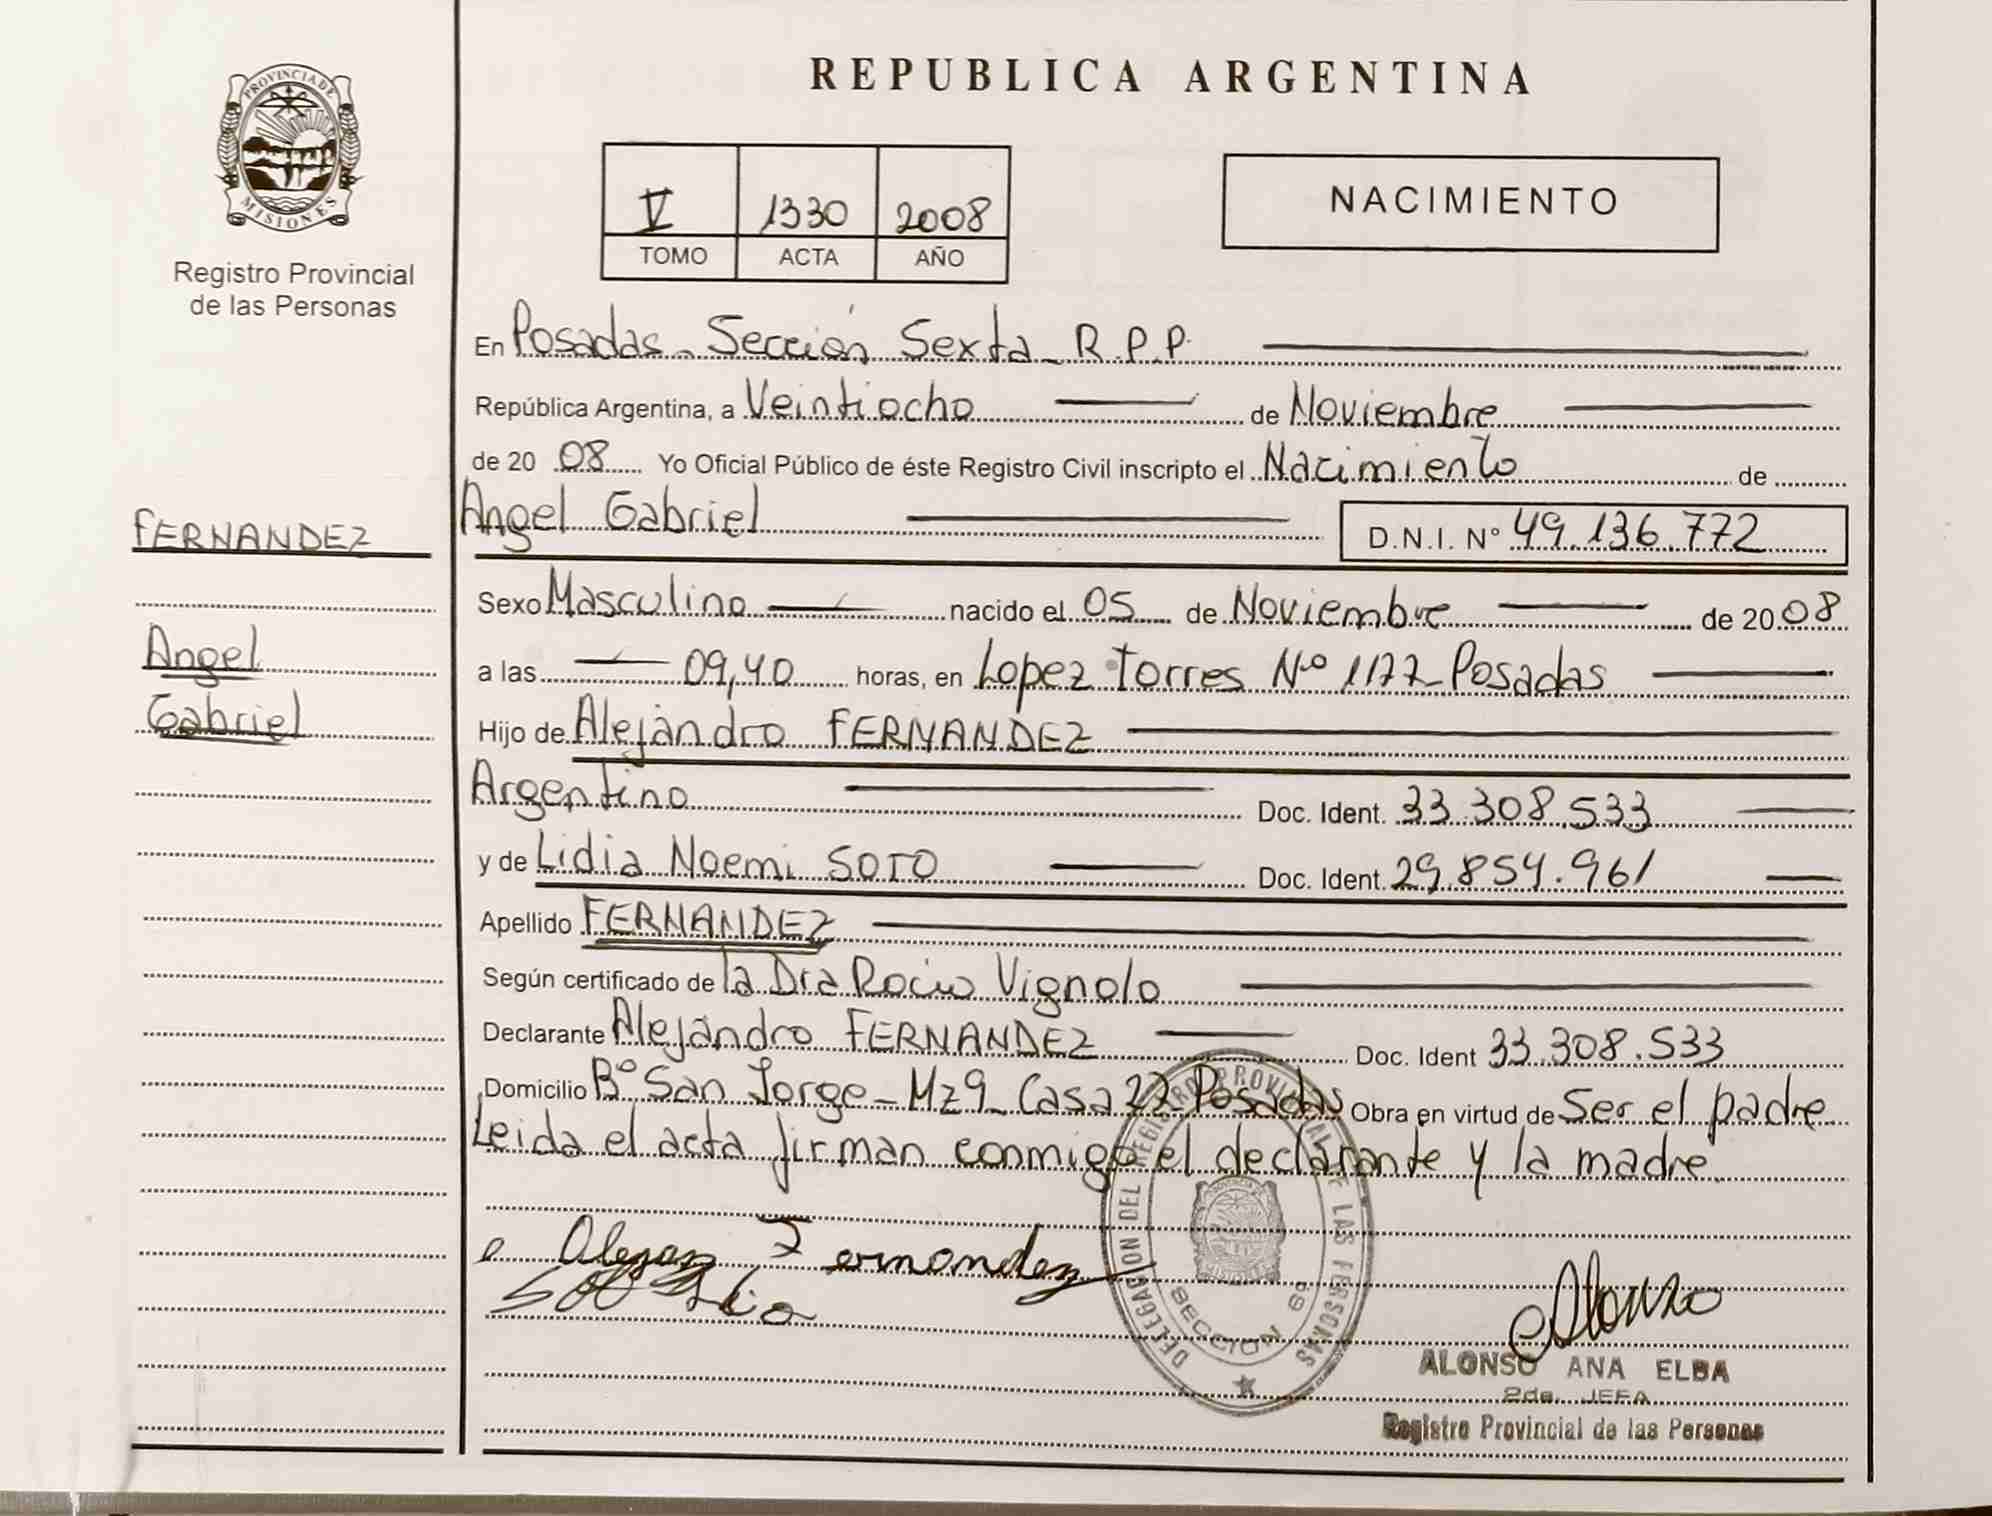 PROVINCIA DE
MISIONES
Registro Provincial
de las Personas
REPUBLICA ARGENTINA
V 1330 2008
TOMO ACTA AÑO
NACIMIENTO
En Posadas - Sección Sexta - R.P.P.
República Argentina, a Veintiocho de Noviembre
de 20 08 Yo Oficial Público de éste Registro Civil inscripto el Nacimiento de
FERNANDEZ
Angel
Gabriel
Angel Gabriel D.N.I. Nº 49.136.772
Sexo Masculino nacido el 05 de Noviembre de 2008
a las 09,40 horas, en Lopez Torres Nº 1177 - Posadas
Hijo de Alejandro FERNANDEZ
Argentino Doc. Ident. 33.308.533
y de Lidia Noemi SOTO Doc. Ident. 29.854.961
Apellido FERNANDEZ
Según certificado de la Dra Rocio Vignolo
Declarante Alejandro FERNANDEZ Doc. Ident 33.308.533
Domicilio Bº San Jorge - Mz 9 - Casa 22 - Posadas Obra en virtud de Ser el padre
Leida el acta firman conmigo el declarante y la madre
Fernandez
DELEGACION DEL REGISTRO PROVINCIAL DE LAS PERSONAS
SECCION 6ª
Alonso
ALONSO ANA ELBA
2da. JEFA
Registro Provincial de las Personas